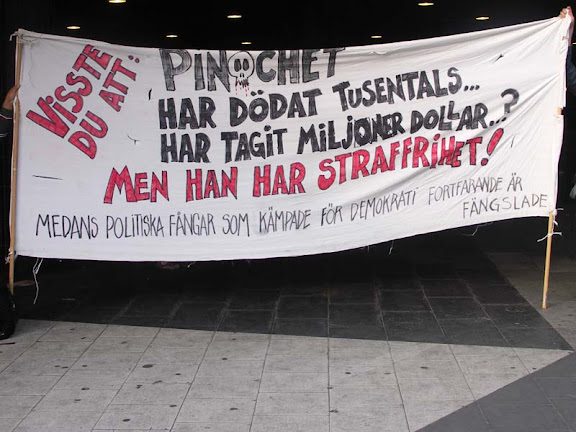 VISSTE
DU ATT:
PINOCHET
HAR DÖDAT TUSENTALS...
HAR TAGIT MILJONER DOLLAR..?
MEN HAN HAR STRAFFRIHET!
MEDANS POLITISKA FÅNGAR SOM KÄMPADE FÖR DEMOKRATI FORTFARANDE ÄR
FÄNGSLADE.